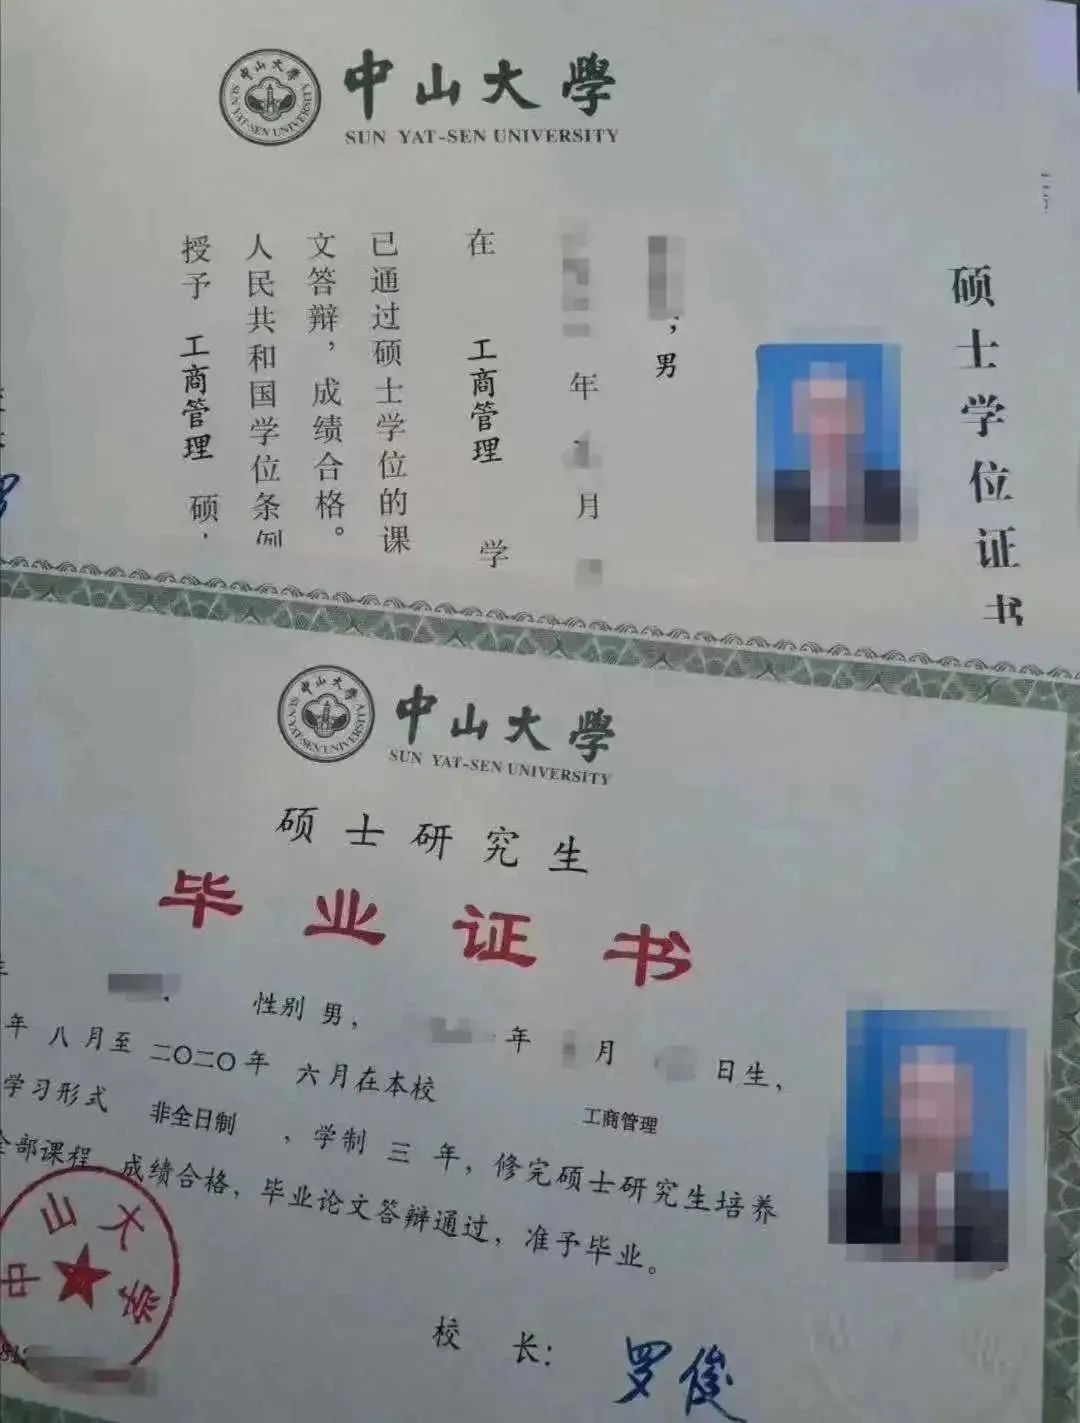 中山大學
SUN YAT-SEN UNIVERSITY
中山大学
SUN YAT-SEN UNIVERSITY
硕士学位证书
；男
年 月
在 工商管理 学
已通过硕士学位的课
文答辩，成绩合格。
人民共和国学位条例
授予 工商管理 硕
中山大學
SUN YAT-SEN UNIVERSITY
中山大学
SUN YAT-SEN UNIVERSITY
硕士研究生
毕业证书
性别 男， 年 月 日生，
年 八月至 二〇二〇年 六月在本校 工商管理
学习形式 非全日制 ，学制 三 年，修完硕士研究生培养
全部课程 成绩合格，毕业论文答辩通过，准予毕业。
中山大学
校 长：罗俊